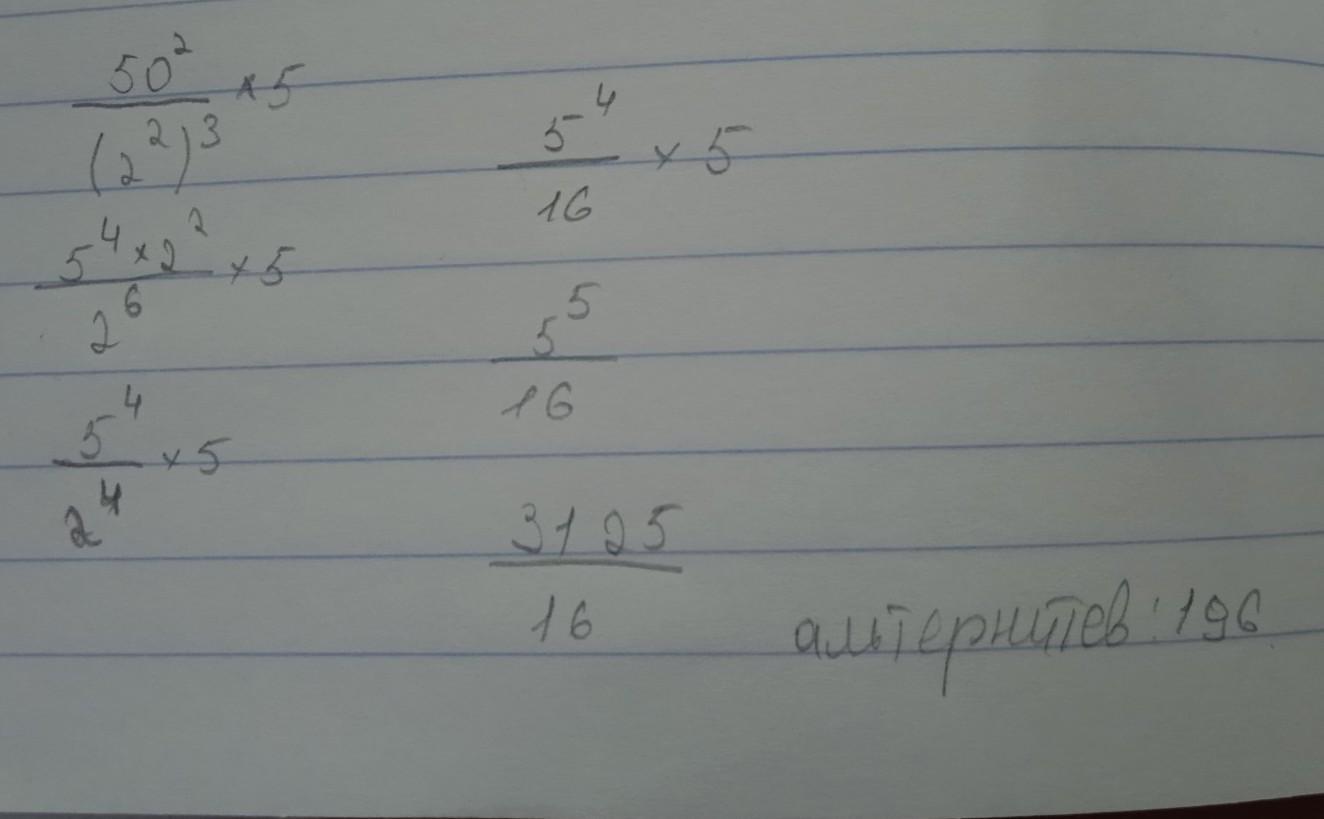 50² × 5
(2²)³
5⁴ × 2² × 5
2⁶
5⁴ × 5
2⁴
5⁴ × 5
16
5⁵
16
3125
16
альтернитев: 196